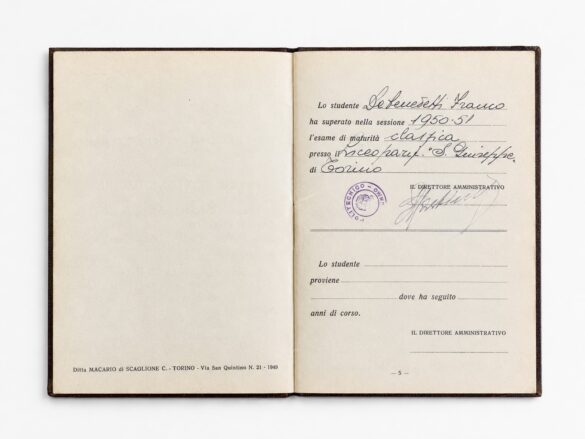 Ditta MACARIO di SCAGLIONE C. - TORINO - Via San Quintino N. 21 - 1949
Lo studente Debenedetti Franco
ha superato nella sessione 1950-51
l'esame di maturità classica
presso il Liceo parif. "S. Giuseppe"
di Torino
IL DIRETTORE AMMINISTRATIVO
POLITECNICO
Lo studente
proviene
dove ha seguito
anni di corso.
IL DIRETTORE AMMINISTRATIVO
— 5 —